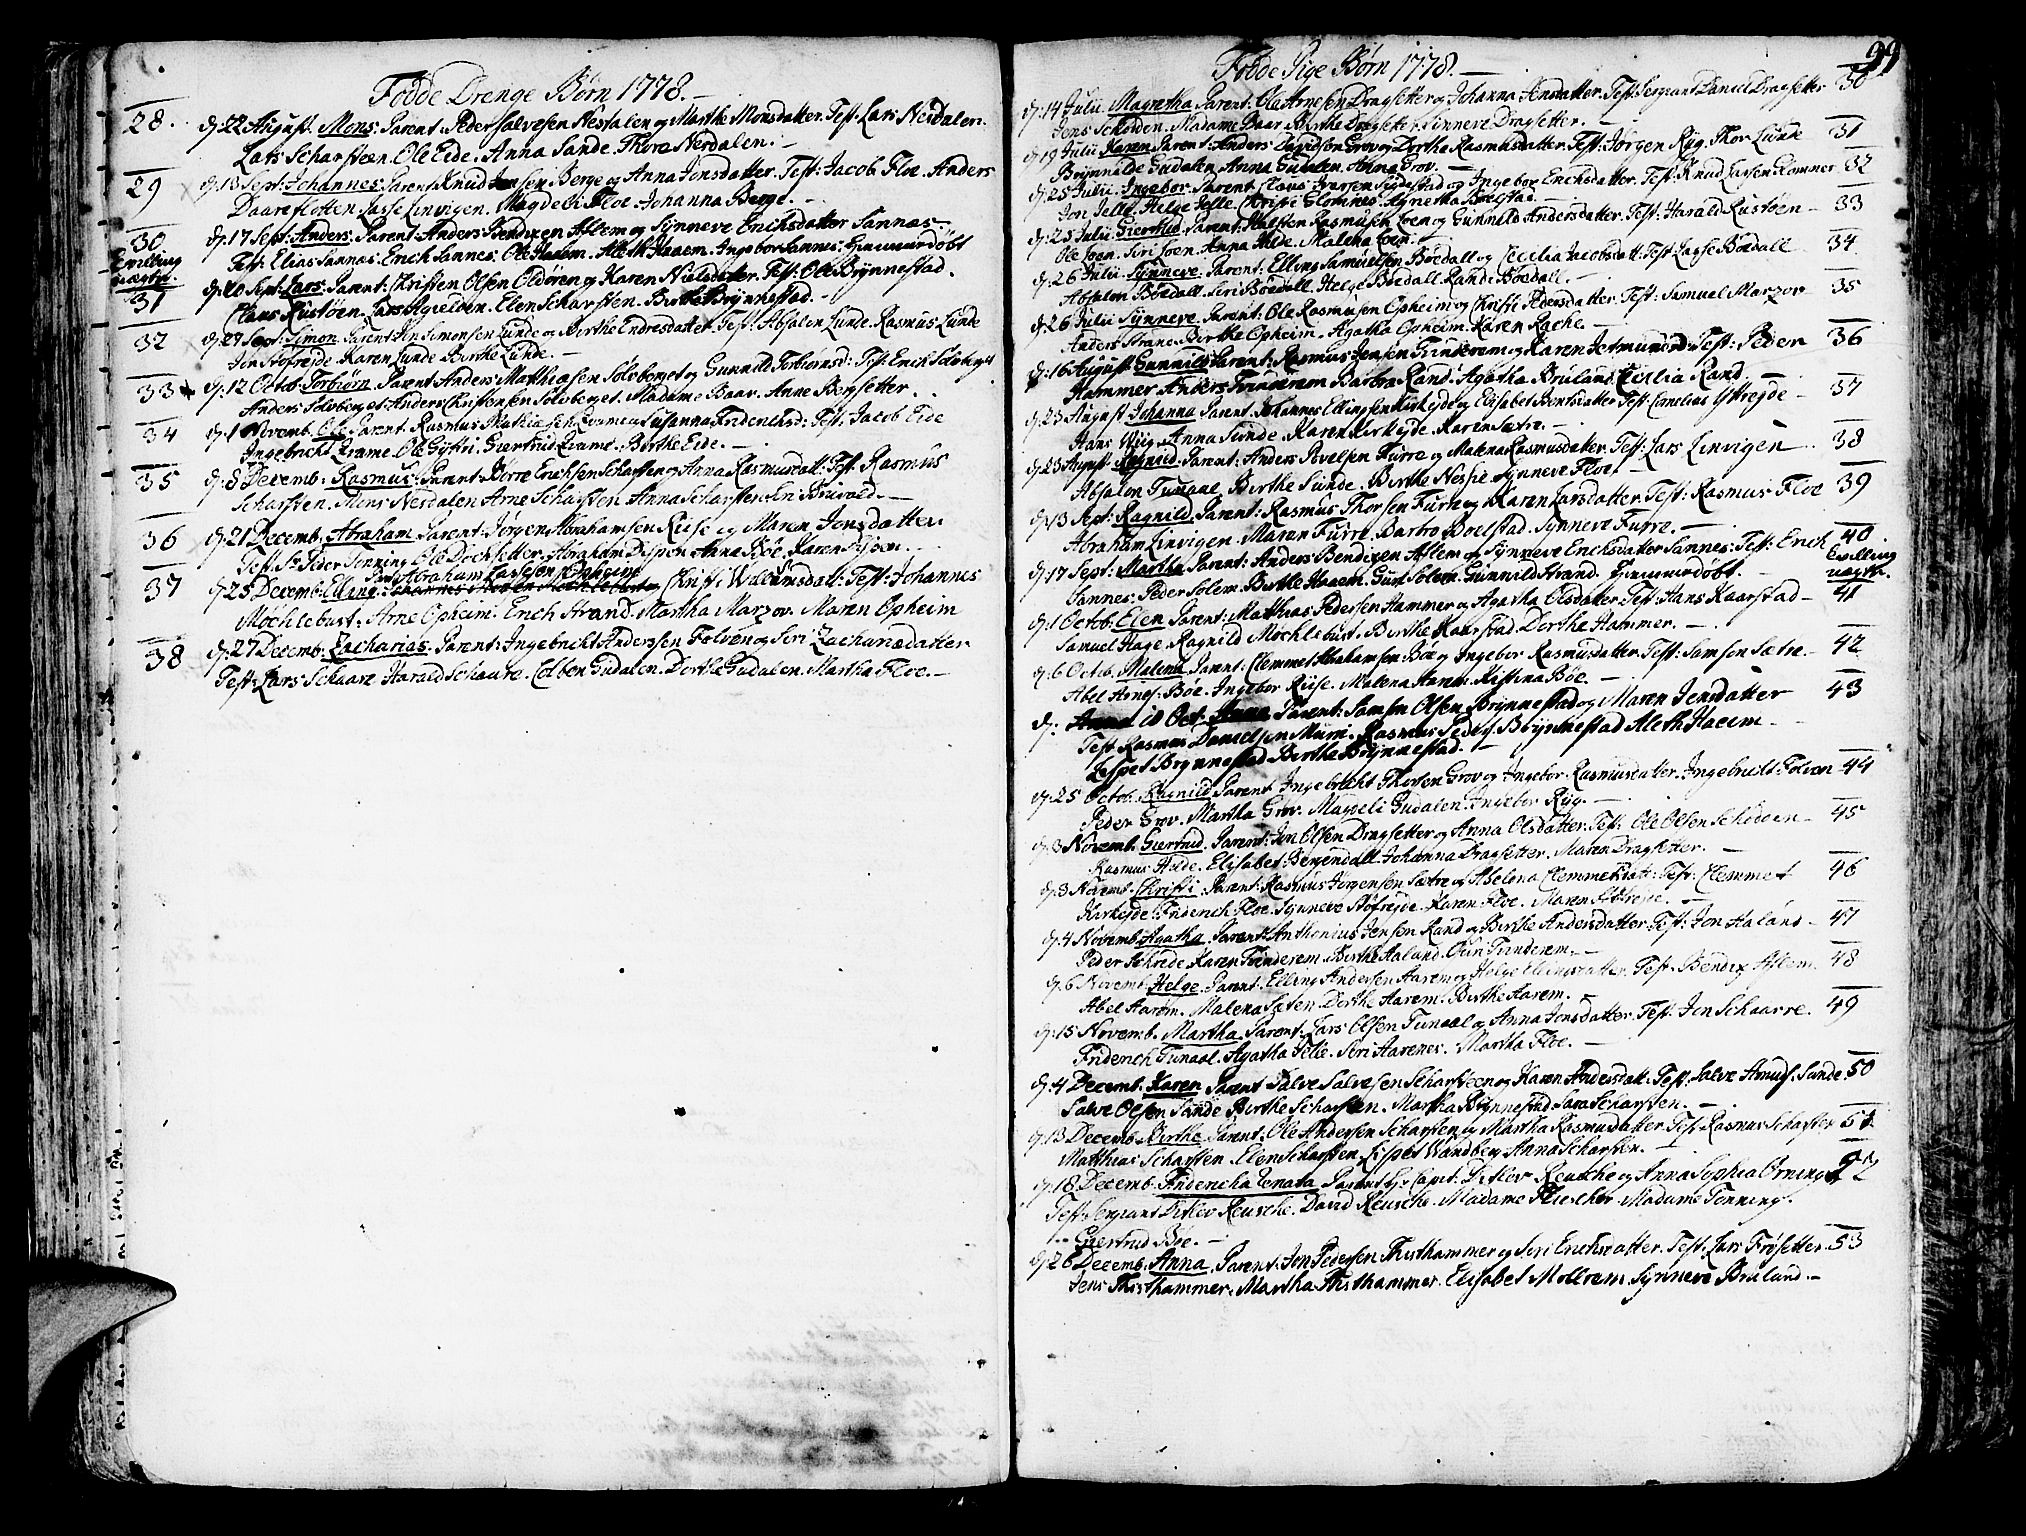 Födde Drenge Børn 1778.
28. d. 22 August. Mons. Parent: Peder Salvesen Nesdalen og Marthe Monsdatter. Test: Lars Nesdalen.
Lars Scharsteen. Ole Eide. Anna Sande. Thore Nesdalen.
29 d. 13 Sept: Johannes. Parent: Knud Jensen Berge og Anna Jonsdatter. Test: Jacob Floe. Anders
Daareflotten. Lasse Linvigen. Magdeli Floe. Johanna Berge.
30 d. 17 Sept: Anders. Parent: Anders Bendixen Aslem og Synneve Erichsdatter Sannæs.
Tvilling
Test: Elias Sannæs. Erich Sannes. Ole Haaem. Aleth Haaem. Ingebor Sannes. Hjemmedøbt
31 d. 20 Sept: Lars. Parent: Christen Olsen Oldören og Karen Nielsdatter. Test: Ole Brynnestad.
Claus Rustøen. Lars Elen Scharsten. Birthe Brynnestad.
32 d. 29 Sept: Simon. Parent: Jon Simonsen Lunde og Birthe Endresdatter. Test: Absalon Lunde. Rasmus Lunde
Jon Stofrejde. Karen Lunde. Birthe Lunde.
33 d. 12 Octob. Torbiørn. Parent: Anders Matthiasen Solvberget og Gunnild Torbiornsd: Test: Erich Solvberget
Anders Solvberget. Anders Christensen Solvberget. Madame Baar. Anne Bergsetter.
34 d. 1 Novemb. Ole. Parent: Rasmus Mathiasen Qvame og Susanna Fridrichsd: Test: Jacob Eide
Ingebricht Qvame. Ole Giertrud Qvame. Birthe Eide.
35 d. 8 Decemb. Rasmus. Parent: Börre Erichsen Scharsten og Anna Rasmusdatt: Test: Rasmus
Scharsten. Mons Nesdalen. Arne Scharsten. Anna Scharsten. Siri Bruvold.
36 d. 21 Decemb. Abraham. Parent: Jørgen Abrahamsen Riise og Maren Jonsdatter.
Test: Sr. Peder Tonning. Ole Abraham Anna Böe. Karen
Parent: Abraham Lassesen Opheim
37 d. 25 Decemb. Elling. Christi Willumsdatt: Test: Johannes
Möchlebust. Arne Opheim. Erich Strand. Martha Marzov. Maren Opheim
38 d. 27 Decemb. Zacharias. Parent: Ingebricht Anderssen Folven og Siri Zachariædatter
Test: Lars Schaare. Harald Schaare. Colben Gudalen. Dorthe Gudalen. Martha Floe.
99
Födde Pige Børn 1778.
d. 14 Julii. Magretha. Parent: Ole Arnesen Dragsetter og Johanna Jensdatter. Test: Sergeant Daniel Dragsetter 30
Jens Schodden. Madame Baar. Birthe Dragsetter. Sinneve Dragsetter.
d. 19 Julii Karen. Parent: Anders Davidson Grov og Dorthe Rasmusdatter. Test: Jørgen Ryg. Thor Lunde 31
Brynnilde Gudalen. Anna Gudalen. Anna Grov.
d. 25 Julii. Ingebor. Parent: Claus Iversen og Ingebor Erichsdatter. Test: Knud Larsen Lommer 32
Jon Jelle. Helge Jelle. Christi Glomnes. Agnetha Boelstad.
d. 25 Julii. Giertrud. Parent: Halsten Rasmusen Loen og Gunnild Andersdatter. Test: Harald Rustøen 33
Ole Loen. Siri Loen. Anna Hilde. Malena Loen.
d. 26 Julii. Synneve. Parent: Elling Samuelsen Boedall og Cecilia Jacobsdatt: Test: Lasse Boedall 34
Absalon Boedall. Siri Boedall. Helge Boedall. Randi Boedall.
d. 26 Julii Synneve. Parent: Ole Rasmusen Opheim og Christi Pedersdatter. Test: Samuel Marzov 35
Anders Strand. Birthe Opheim. Agatha Opheim. Karen Rache.
d. 16 August. Gunnild. Parent: Rasmus Jensen Tvinderem og Karen Jetmundsd: Test: Peder 36
Hammer. Anders Tvinderem. Barbra Rand. Agatha Bruland. Cecilia Rand.
d. 23 August Johanna. Parent: Johannes Ellingsen Kirkejde og Elisabet Bentsdatter. Test: Cornelius Ytrejde 37
Hans Wiig. Anna Sunde. Karen Kirkejde. Karen Sætre.
d. 23 August. Ragnild. Parent: Anders Povelsen Furre og Malena Rasmusdatter. Test: Lars Linvigen 38
Absalon Tunaal. Birthe Sunde. Birthe Synneve Floe.
d. 13 Sept: Ragnild. Parent: Rasmus Thorsen Furre og Karen Larsdatter. Test: Rasmus Floe 39
Abraham Linvigen. Maren Furre. Barbro Boelstad. Synneve Furre.
d. 17 Sept: Martha. Parent: Anders Bendixen Aslem og Synneve Erichsdatter Sannes. Test: Erich 40
Tvilling
Sannes. Peder Solem. Birthe Haaem. Guri Solem. Gunnild Strand. Hjemmedøbt.
d. 1 Octob. Elen. Parent: Matthias Pedersen Hammer og Agatha Olsdatter. Test: Hans Kaarstad 41
Samuel Hage. Ragnild Möchlebust. Birthe Kaarstad. Dorthe Hammer.
d. 6 Octob. Malena. Parent: Clemmet Abrahamsen Böe og Ingebor Rasmusdatter. Test: Samsen Sætre 42
Abel Arnes. Böe. Ingebor Riise. Malena Kistina Böe.
d. 18 Oct. Anna. Parent: Samsen Olsen Brynnestad og Maren Jensdatter 43
Test: Rasmus Danielsen Muri. Rasmus Peders. Brynnestad. Aleth Haeem
Lispet Brynnestad. Birthe Brynnestad.
d. 25 Octob. Ragnild. Parent: Ingebricht Thorsen Grov og Ingebor Rasmusdatter. Ingebricht Folven 44
Peder Grov. Martha Grov. Magdeli Gudalen. Ingebor Ryg.
d. 3 Novemb. Giertrud. Parent: Jon Olsen Dragsetter og Anna Olsdatter. Test: Ole Olsen Schodden 45
Rasmus Hilde. Elisabet Bergendall. Johanna Dragsetter. Maren Dragsetter.
d. 3 Novemb. Christi. Parent: Rasmus Jørgensen Sætre og Abelona Clemmetsdatt: Test: Clemmet 46
Kirkejde. Friderich Floe. Synneve Stofrejde. Karen Floe. Maren Stofrejde.
d. 4 Novemb. Agatha. Parent: Anthonius Jensen Rand og Birthe Andersdatter. Test: Jon Haland 47
Peder Schrede. Karen Tvinderem. Birthe Aaland. Tvinderem.
d. 6 Novemb. Helge. Parent: Elling Andersen Aarem og Helge Ellingsdatter. Test: Bendix Aslem 48
Abel Aarem. Malena Dorthe Aarem. Birthe Aarem.
d. 15 Novemb. Martha. Parent: Lars Olsen Tunaal og Anna Jonsdatter. Test: Jon Schaarre. 49
Friderich Tunaal. Agatha Jelle. Siri Aarenes. Martha Floe.
d. 4 Decemb. Karen. Parent: Salve Salvesen Scharsteen og Karen Andersdatt. Test: Salve Amuds. Sande 50
Salve Olsen Sande. Birthe Scharsten. Martha Brynnestad. Sara Scharsten.
d. 13 Decemb. Birthe. Parent: Ole Andersen Scharsten og Martha Rasmusdatter. Test: Rasmus Scharsten 51
Matthias Scharsten. Elen Scharsten. Lispet Wandberg. Anna Scharsten.
d. 18 Decemb. Fridericha Renata. Parent: Hr. Capit: Ditlev Reusche og Anna Sophia Örning 52
Test: Sergeant Ditlev Reusche. David Reusche. Madame Fleischer. Madame Tonning.
Giertrud Böe.
d. 26 Decemb. Anna. Parent: Jon Pedersen Thisthammer og Siri Erichsdatter. Test: Lars Frøsetter 53
Jens Thisthammer. Martha Thisthammer. Elisabet Mollrem. Synneve Bruland.